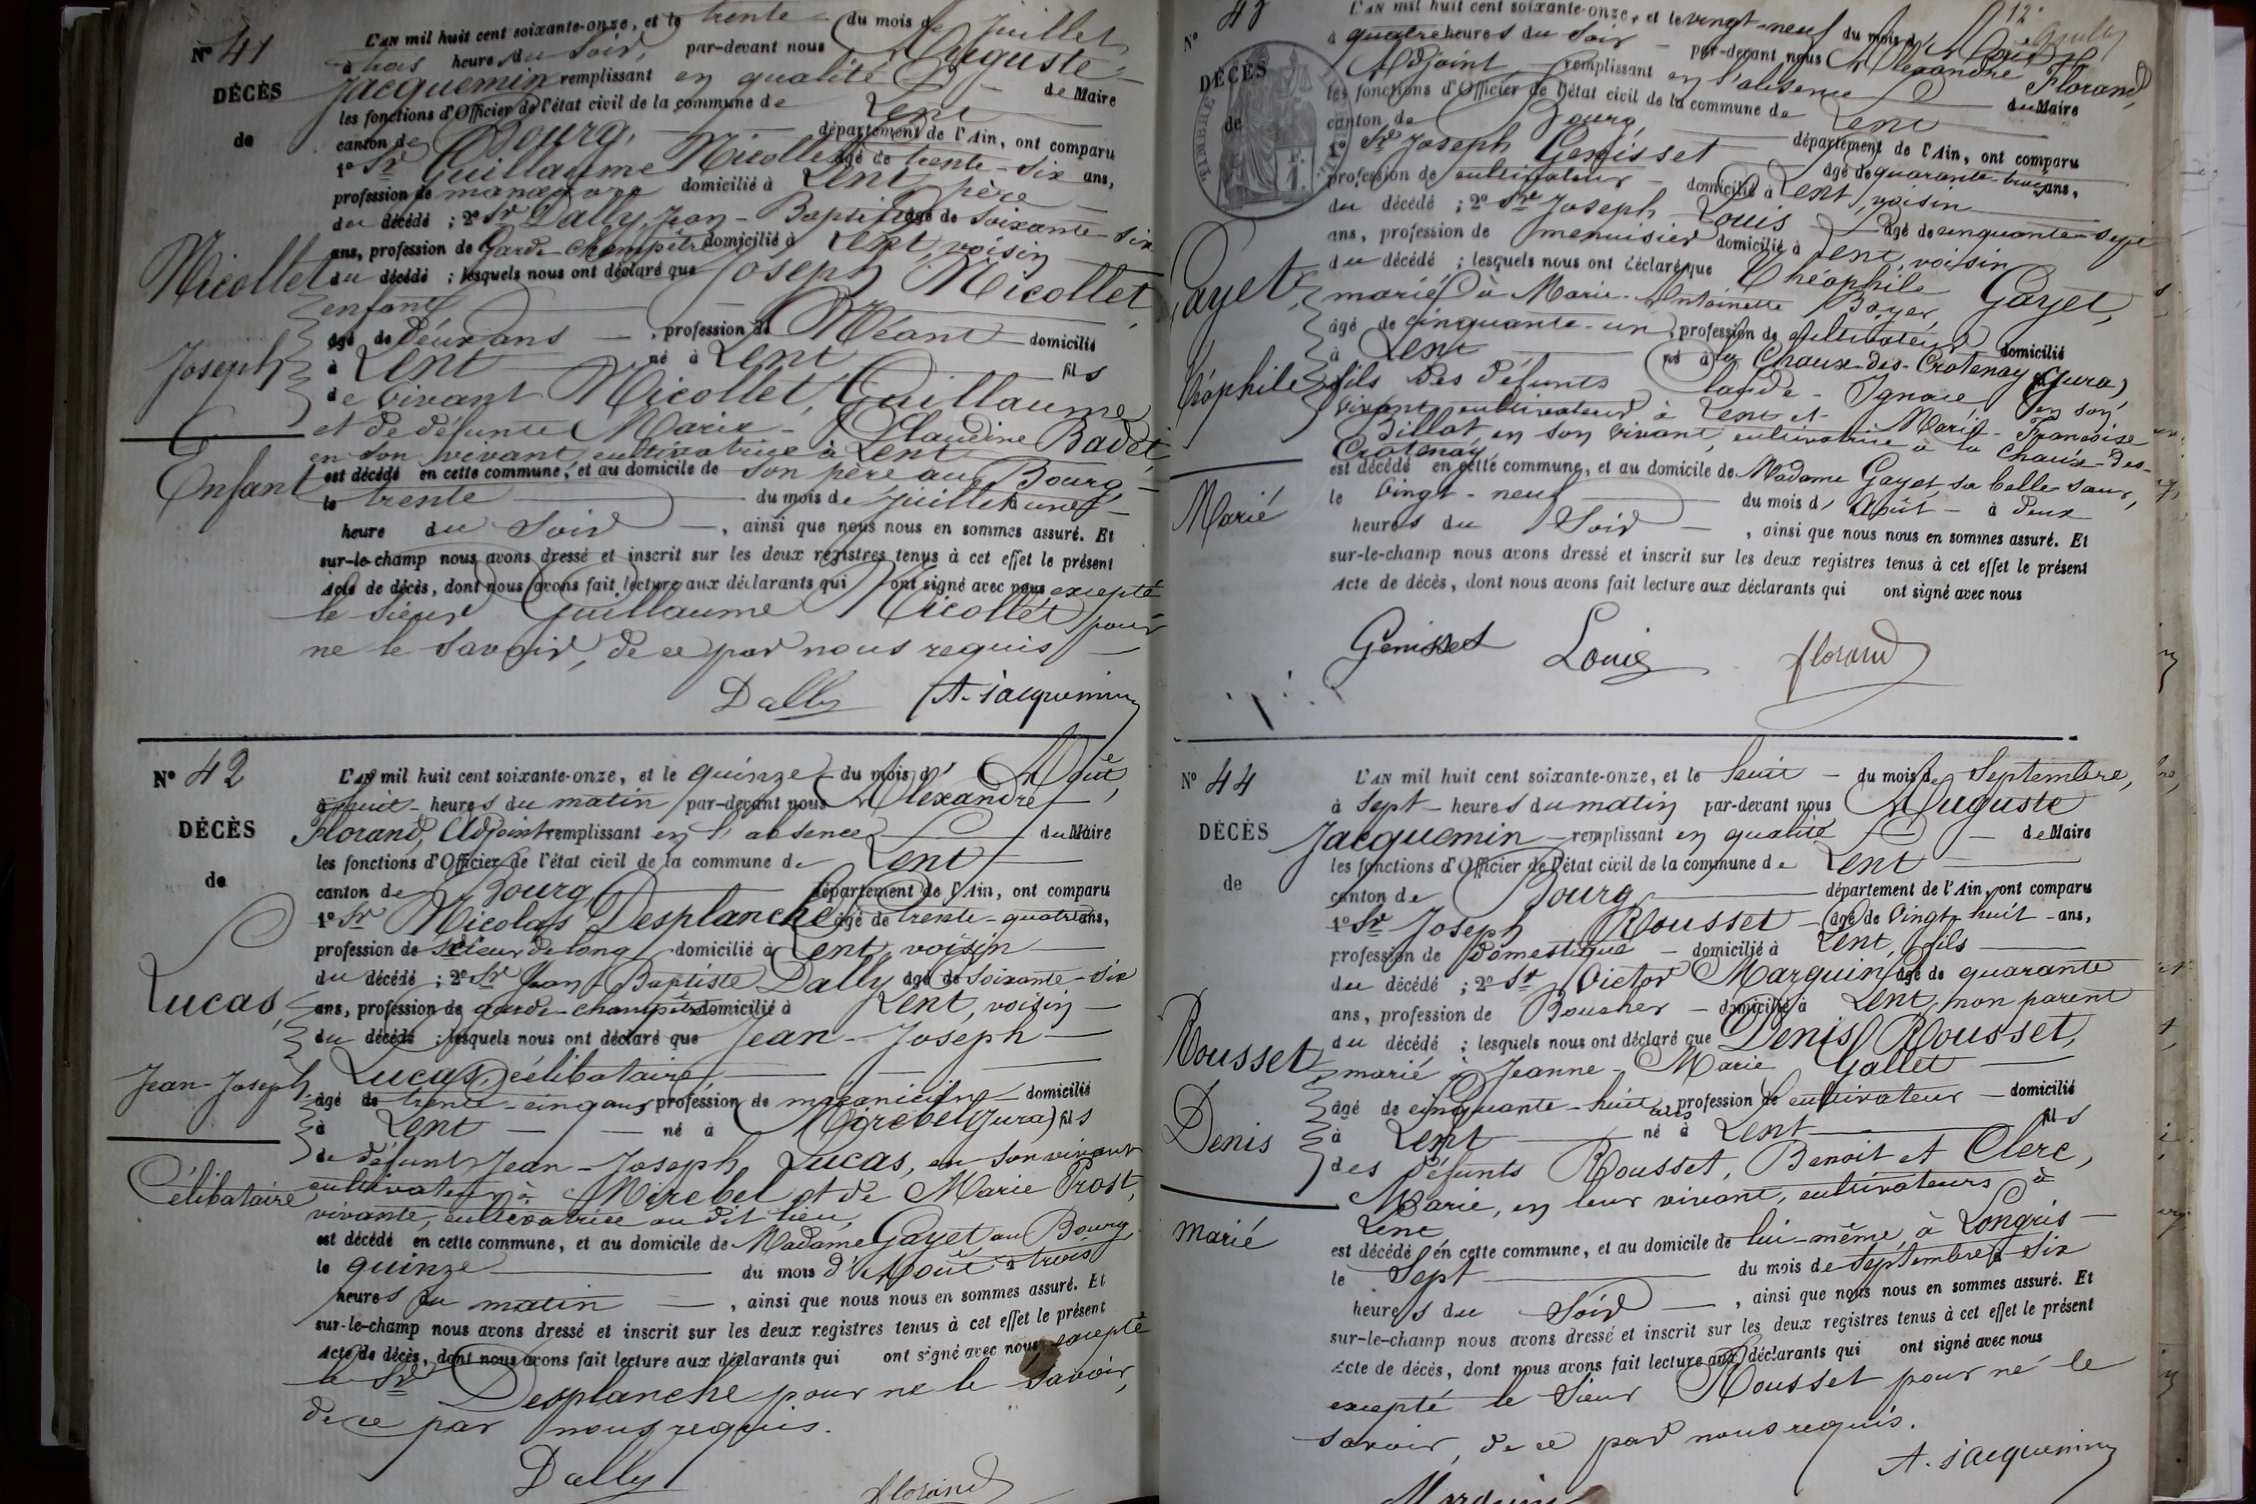 N° 41
DÉCÈS
de
Nicollet
Joseph
Enfant
L'AN mil huit cent soixante-onze, et le trente du mois de Juillet
à trois heures du Soir, par-devant nous Auguste
Jacquemin remplissant en qualité de Maire
les fonctions d'Officier de l'état civil de la commune de Lent
canton de Bourg, département de l'Ain, ont comparu
1° Sr Guillaume Nicollet âgé de trente-six ans,
profession de manœuvre domicilié à Lent, père
du décédé ; 2° Sr Dally, Jean-Baptiste âgé de soixante-six
ans, profession de Garde-Champêtre domicilié à Lent, voisin
du décédé ; lesquels nous ont déclaré que Joseph Nicollet,
enfant
âgé de Deux ans , profession de Néant domicilié
à Lent né à Lent fils
de vivant Nicollet, Guillaume
et de défunte Marie-Claudine Badet,
en son vivant cultivatrice à Lent
est décédé en cette commune, et au domicile de son père au Bourg
le trente du mois de Juillet à une
heure du Soir , ainsi que nous nous en sommes assuré. Et
sur-le-champ nous avons dressé et inscrit sur les deux registres tenus à cet effet le présent
Acte de décès, dont nous avons fait lecture aux déclarants qui ont signé avec nous excepté
le sieur Guillaume Nicollet pour
ne le savoir, de ce par nous requis
Dally A. Jacquemin
N° 42
DÉCÈS
de
Lucas,
Jean-Joseph
Célibataire
L'AN mil huit cent soixante-onze, et le quinze du mois d'Août,
à huit heures du matin par-devant nous Alexandre
Florand, Adjoint remplissant en l'absence du Maire
les fonctions d'Officier de l'état civil de la commune de Lent
canton de Bourg département de l'Ain, ont comparu
1° Sr Nicolas Desplanche âgé de trente-quatre ans,
profession de scieur de long domicilié à Lent, voisin
du décédé ; 2° Sr Jean Baptiste Dally âgé de soixante-six
ans, profession de garde-champêtre domicilié à Lent, voisin
du décédé ; lesquels nous ont déclaré que Jean-Joseph
Lucas, célibataire,
âgé de trente-cinq ans, profession de mécanicien domicilié
à Lent né à Mirebel (Jura) fils
de défunt Jean-Joseph Lucas, en son vivant
cultivateur à Mirebel et de Marie Prost,
vivante, cultivatrice au dit lieu,
est décédé en cette commune, et au domicile de Madame Gayet au Bourg
le quinze du mois d'Août à trois
heures du matin , ainsi que nous nous en sommes assuré. Et
sur-le-champ nous avons dressé et inscrit sur les deux registres tenus à cet effet le présent
Acte de décès, dont nous avons fait lecture aux déclarants qui ont signé avec nous excepté
le Sr Desplanche pour ne le savoir,
de ce par nous requis.
Dally florand
N° 43
DÉCÈS
de
Gayet,
Théophile
Marié
L'AN mil huit cent soixante-onze, et le vingt-neuf du mois d'Août
à quatre heures du Soir par-devant nous Alexandre Florand,
Adjoint remplissant en l'absence du Maire
les fonctions d'Officier de l'état civil de la commune de Lent
canton de Bourg, département de l'Ain, ont comparu
1° Sr Joseph Genisset âgé de quarante-trois ans,
profession de cultivateur domicilié à Lent, voisin
du décédé ; 2° Sr Joseph Louis âgé de cinquante-sept
ans, profession de menuisier domicilié à Lent, voisin
du décédé ; lesquels nous ont déclaré que Théophile Gayet,
marié à Marie-Antoinette Boyer
âgé de cinquante-un , profession de cultivateur domicilié
à Lent né à la Chaux-des-Crotenay (Jura)
fils des défunts Claude-Ignace en son
vivant cultivateur à Lent et Marie-Françoise
Billot en son vivant, cultivatrice à la Chaux-des-
Crotenay
est décédé en cette commune, et au domicile de Madame Gayet sa belle-sœur,
le vingt-neuf du mois d'Août à deux
heures du Soir , ainsi que nous nous en sommes assuré. Et
sur-le-champ nous avons dressé et inscrit sur les deux registres tenus à cet effet le présent
Acte de décès, dont nous avons fait lecture aux déclarants qui ont signé avec nous
Genisset Louis florand
N° 44
DÉCÈS
de
Rousset
Denis
Marié
L'AN mil huit cent soixante-onze, et le huit du mois de Septembre,
à Sept heures du matin par-devant nous Auguste
Jacquemin remplissant en qualité de Maire
les fonctions d'Officier de l'état civil de la commune de Lent
canton de Bourg département de l'Ain, ont comparu
1° Sr Joseph Rousset âgé de vingt-huit ans,
profession de Domestique domicilié à Lent, fils
du décédé ; 2° Sr Victor Marquin âgé de quarante
ans, profession de Boucher domicilié à Lent, non parent
du décédé ; lesquels nous ont déclaré que Denis Rousset,
marié à Jeanne-Marie Gallet
âgé de cinquante-huit ans profession de cultivateur domicilié
à Lent né à Lent fils
des défunts Rousset, Benoit et Clerc,
Marie, en leur vivant, cultivateurs à
Lent
est décédé en cette commune, et au domicile de lui-même, à Longris
le Sept du mois de Septembre à six
heures du Soir , ainsi que nous nous en sommes assuré. Et
sur-le-champ nous avons dressé et inscrit sur les deux registres tenus à cet effet le présent
Acte de décès, dont nous avons fait lecture aux déclarants qui ont signé avec nous
excepté le Sieur Rousset pour ne le
savoir, de ce par nous requis.
A. Jacquemin